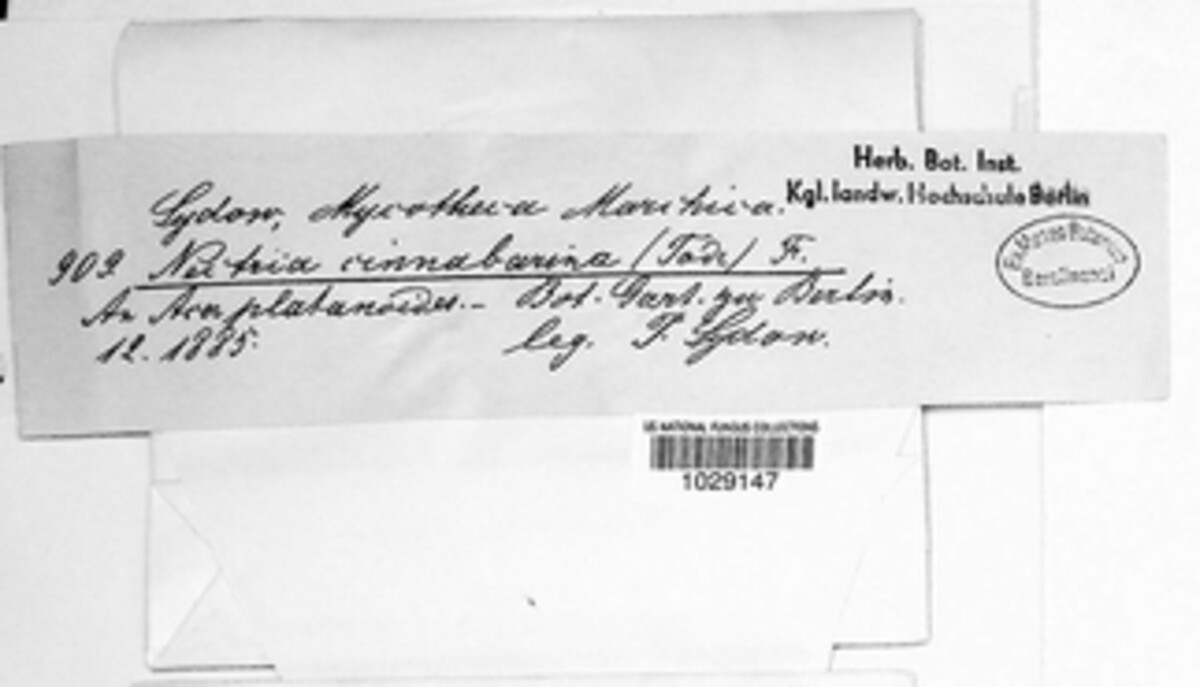 Herb. Bot. Inst.
Kgl. landw. Hochschule Berlin
Sydow, Mycotheca Marchica.
909 Nectria cinnabarina (Tode) Fr.
An Acer platanoides. – Bot. Gart. zu Berlin.
12. 1885.
leg. P. Sydow.
US NATIONAL FUNGUS COLLECTIONS
1029147